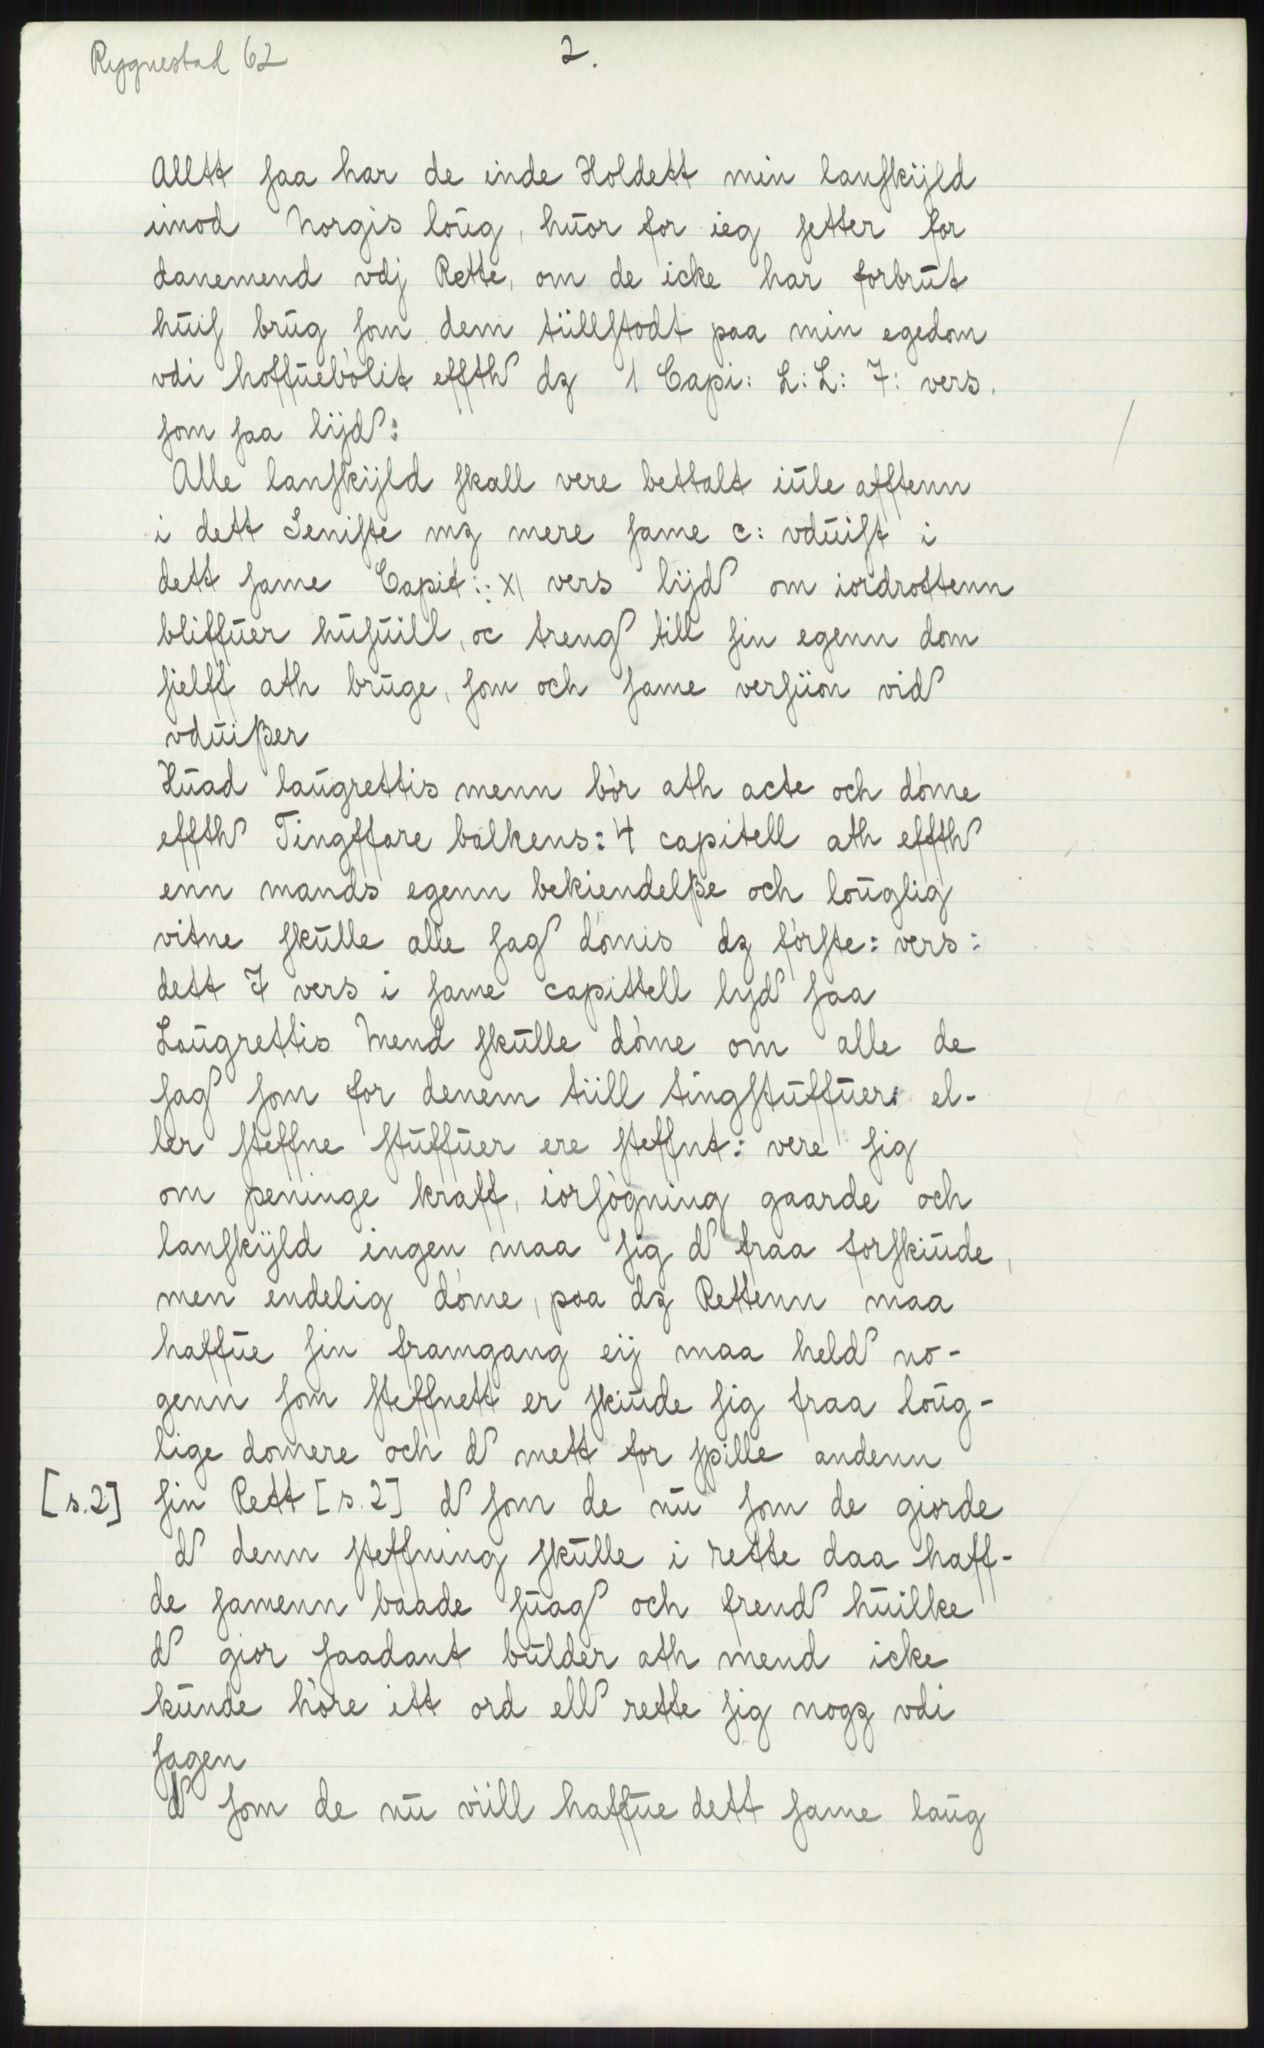 Rygnestad 62
2.
Alltt saa har de inde Holdett min lanskijld
imod Norgis loug, huor for ieg setter for
danemend vdj Rette, om de icke har forbrut
huis brug som dem tiillstodt paa min egedom
vdi hoffuebólit effth dz 1 Capi: L:L: 7: vers.
som saa lijd:
Alle lanskijld skall vere bettalt iule afftenn
i dett Seniste mz mere same c: vduist i
dett same Capit:: XI vers lijd om iordrottenn
bliffuer husuill, oc treng till sin egenn dom
sielff ath bruge, som och same versiion vid
vduißer
Huad laugrettis menn bór ath acte och dóme
effth Tingffare balkens: 4 capitell ath effth
enn mands egenn bekiendelße och louglig
vitne skulle alle sag dómis dz fórste: vers:
dett 7 vers i same capittell lyd saa
Lougrettis Mend skulle dóme om alle de
sag som for denem tiill tingstuffuer: el-
ler steffne stuffuer ere steffnt: vere sig
om peninge kraff, iorsógning gaarde och
lanskijld ingen maa sig d fraa forskiude,
men endelig dóme, paa dz Rettenn maa
haffue sin framgang eij maa held no-
genn som steffnett er skiude sig fraa loug-
lige domere och d mett for spille andenn
[s.2] sin Rett [s.2] d som de nu som de giorde
d denn steffning skulle i rette daa haff-
de samenn baade suag och frend huilke
d gior saadant bulder ath mend icke
kunde hóre itt ord ell rette sig nogz vdi
sagen
d som de nu viill haffue dett same laug